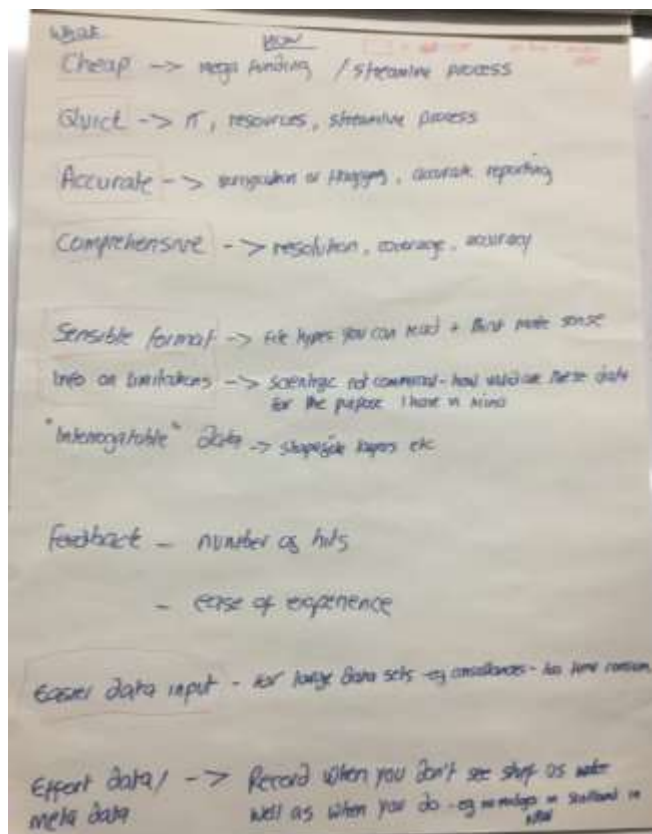 What How
Cheap -> mega funding / streamline process
Quick -> IT, resources, streamline process
Accurate -> or flagging, accurate reporting
Comprehensive -> resolution, coverage, accuracy
Sensible format -> file types you can read + that make sense
Info on limitations -> scientific not commercial - how valid are these data
for the purpose I have in mind
"Interrogatable" data -> shapefile layers etc
Feedback - number of hits
- ease of experience
Easier data input - for large data sets - eg - time consum
Effort data/ -> Record when you don't see stuff as
meta data well as when you do - eg in Scotland in